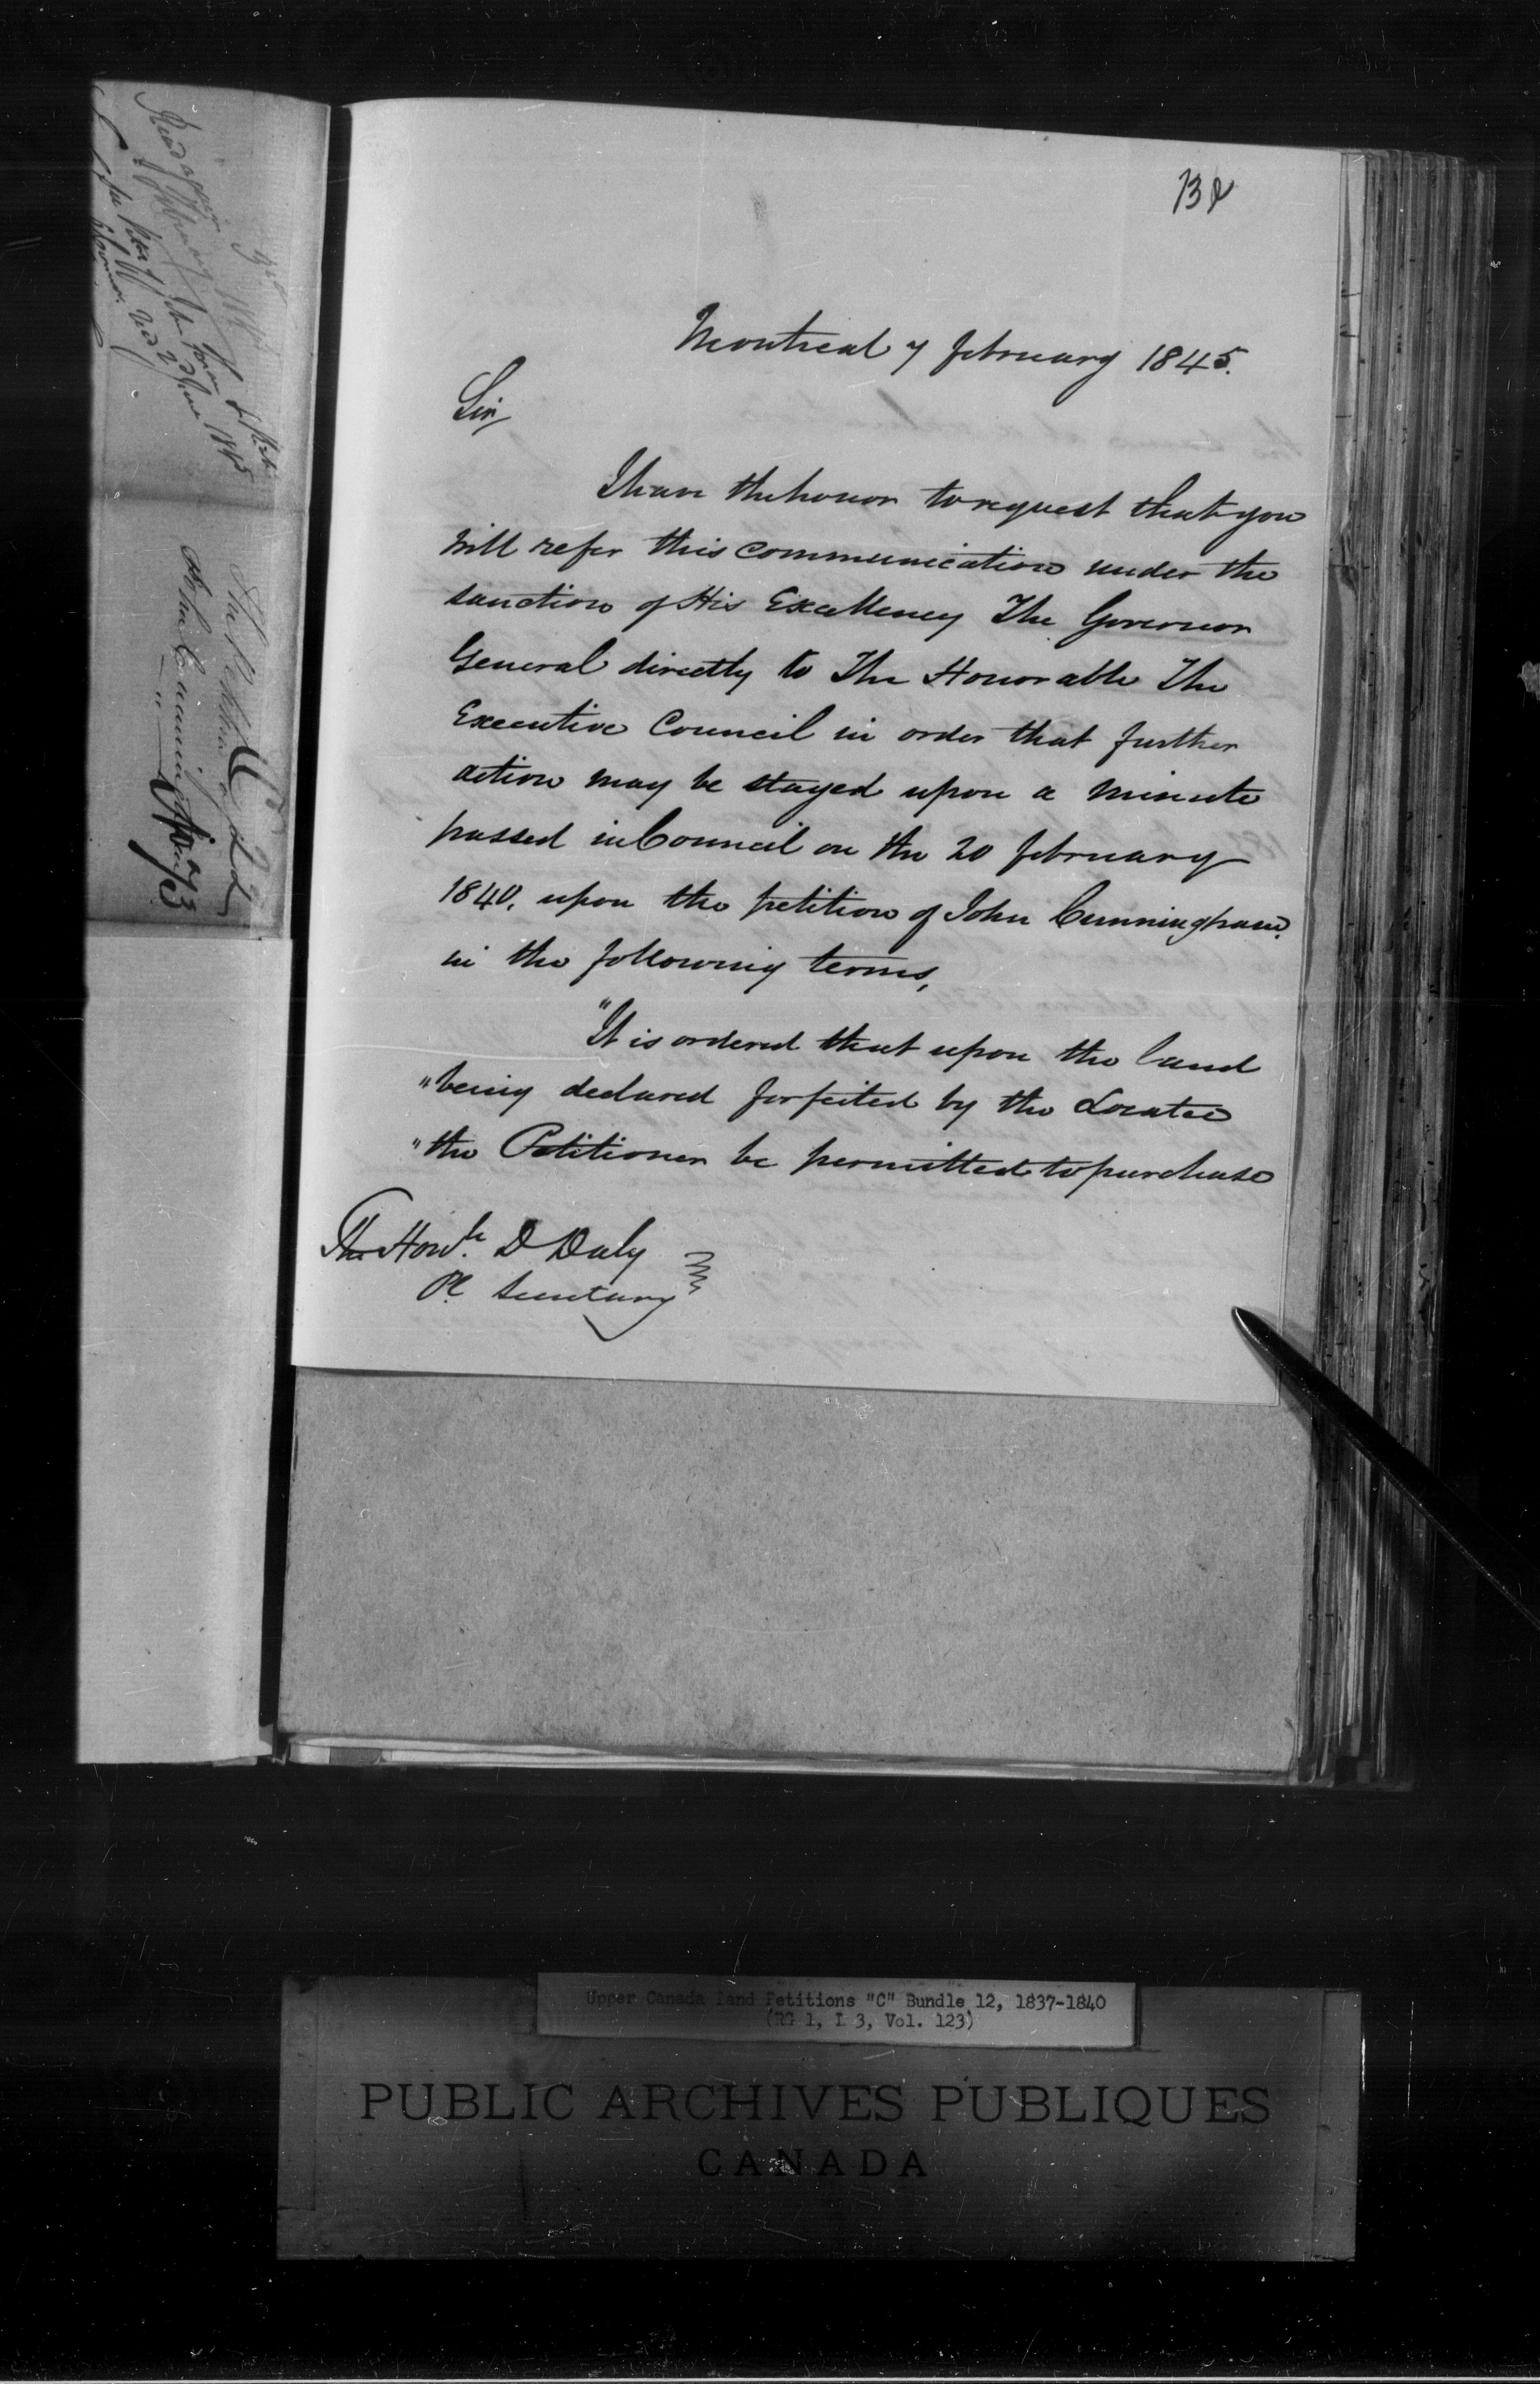 13d
Montreal 7 February 1845.
Sir
I have the honor to request that you
will refer this communication under the
sanction of His Excellency The Governor
General directly to The Honorable The
Executive Council in order that further
action may be stayed upon a minute
passed in Council on the 20 February
1840, upon the petition of John Cunningham
in the following terms,
"It is ordered that upon the land
"being declared forfeited by the Locatee
"the Petitioner be permitted to purchase
The Honble D Daly
Pl Secretary
Read again
February
June 1845
The Petition of
John Cunningham
Upper Canada Land Petitions "C" Bundle 12, 1837-1840
(RG 1, L 3, Vol. 123)
PUBLIC ARCHIVES PUBLIQUES
CANADA